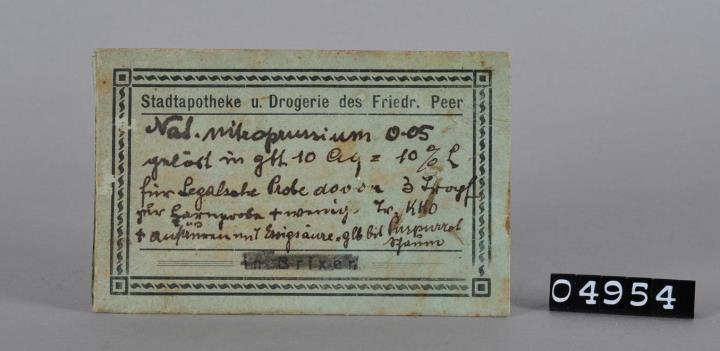 Stadtapotheke u. Drogerie des Friedr. Peer
Nat. nitroprussium 0.05
gelöst in gtt 10 Aq = 10 %
für Legalsche Probe davon 3 Tropf
zur Harnprobe + wenig
+ ansäuren mit Essigsäure. glb bis Purpurrot
Schaum
in Brixen
04954